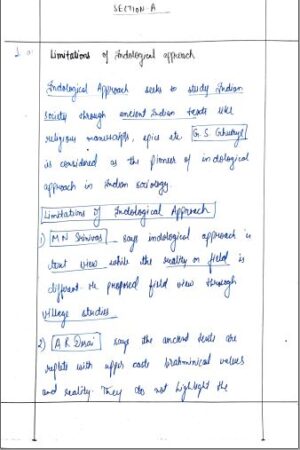 SECTION-A
1 a Limitations of Indological approach
Indological Approach seeks to study Indian
society through ancient Indian texts like
religious manuscripts, epics etc. G. S. Ghurye
is considered as the pioneer of indological
approach in Indian sociology.
Limitations of Indological Approach
1) M N Srinivas says indological approach is
text view while the reality on field is
different. He proposed field view through
village studies
2) A R Desai says the ancient texts are
replete with upper caste brahminical values
and reality. They do not highlight the